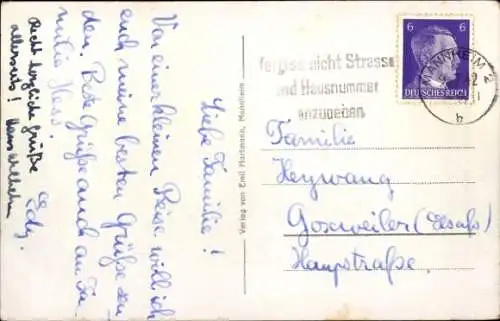 Liebe Familie!
Von einer kleinen Reise will ich
euch meine besten Grüße sen-
den. Beste Grüße auch an Fa-
milie Hess.
Recht herzliche Grüße
allerseits!
Verlag von Emil Hartmann, Mannheim
Vergiss nicht Strasse
und Hausnummer
anzugeben
MANNHEIM 2
b
6 6
DEUTSCHES REICH
Familie
Heywang
Goxweiler (Elsaß)
Hauptstraße.